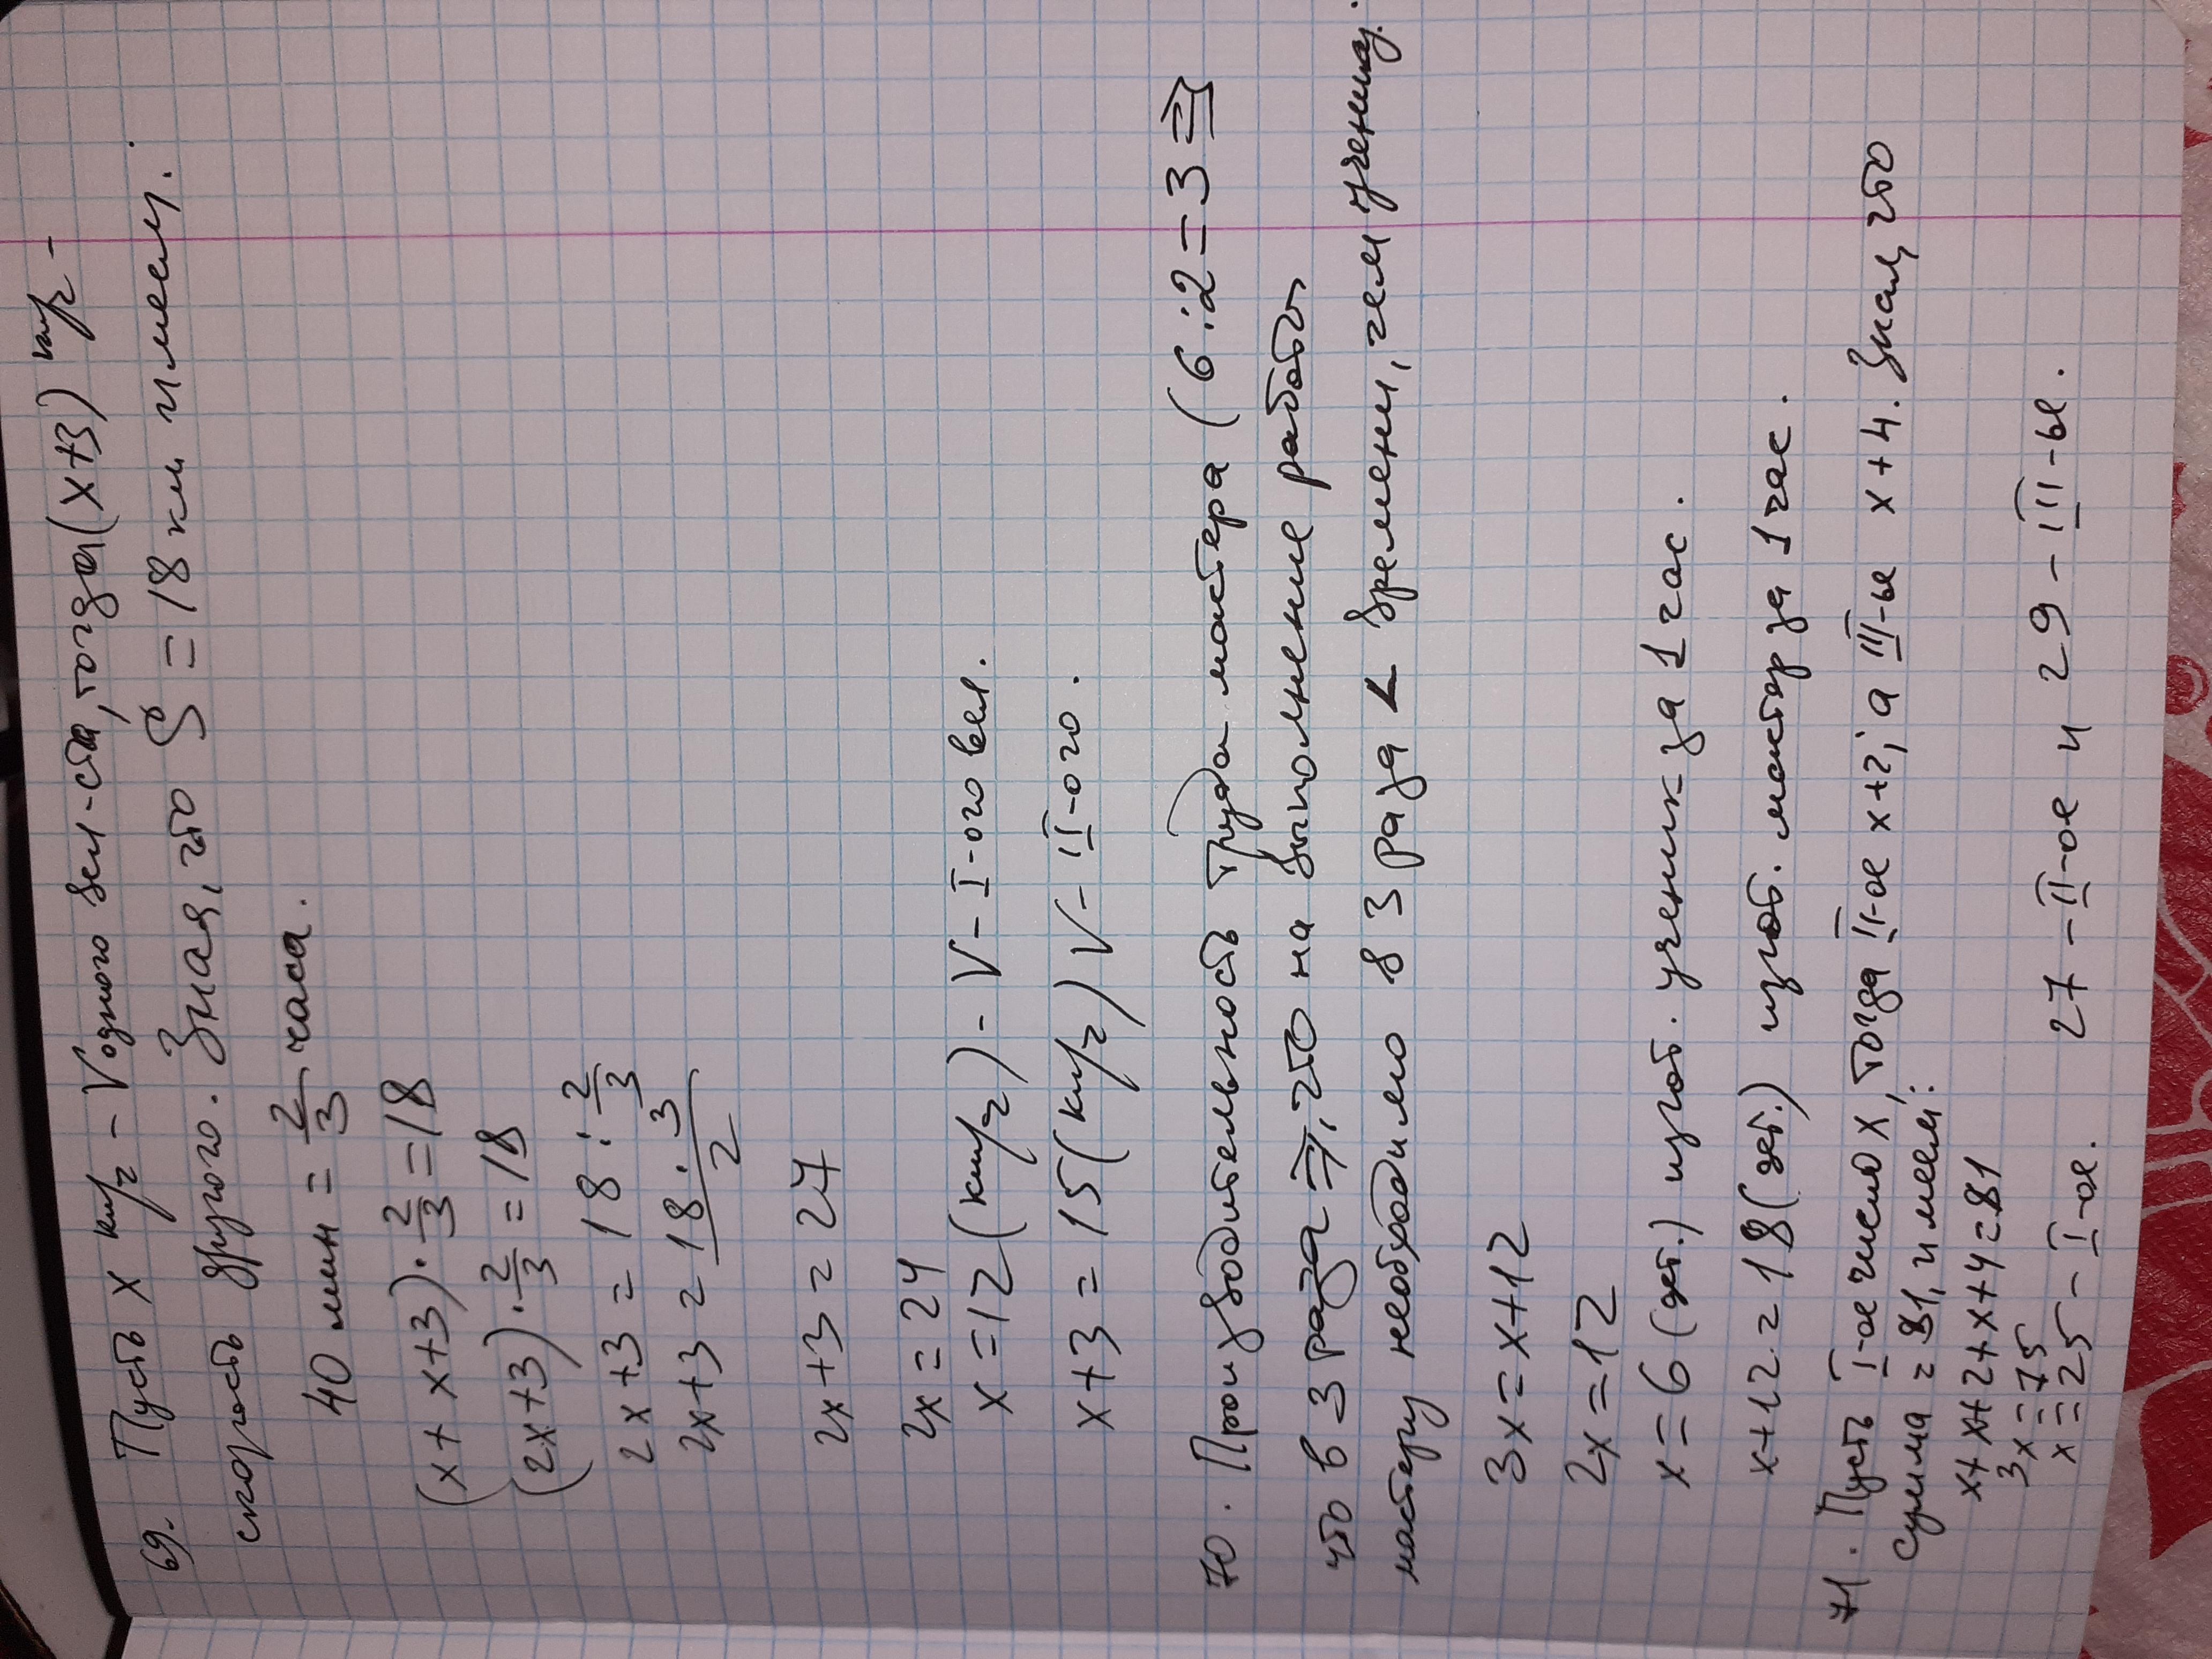 69. Пусть х км/г - V одного вел-ста, тогда (х+3) км/г -
скорость другого. Зная, что S = 18 км имеем.
40 мин = 2/3 часа.
(x + x+3) · 2/3 = 18
(2x+3) · 2/3 = 18
2x+3 = 18 : 2/3
2x+3 = 18·3/2
2x+3 = 27
2x = 24
x = 12 (км/г) - V - I-ого вел.
x+3 = 15 (км/г) V - II-ого.
70. Производительность труда мастера (6:2=3 ⇒)
что в 3 раза ⇒, что на выполнение работы
мастеру необходимо в 3 раза < времени, чем ученику.
3x = x+12
2x = 12
x = 6 (дет.) изгот. ученик за 1 час.
x+12 = 18 (дет.) изгот. мастер за 1 час.
71. Пусть I-ое число х, тогда II-ое х+2; а III-ье х+4. Зная, что
сумма = 81, имеем:
x+x+2+x+4=81
3x = 75
x = 25 - I-ое. 27 - II-ое и 29 - III-ье.